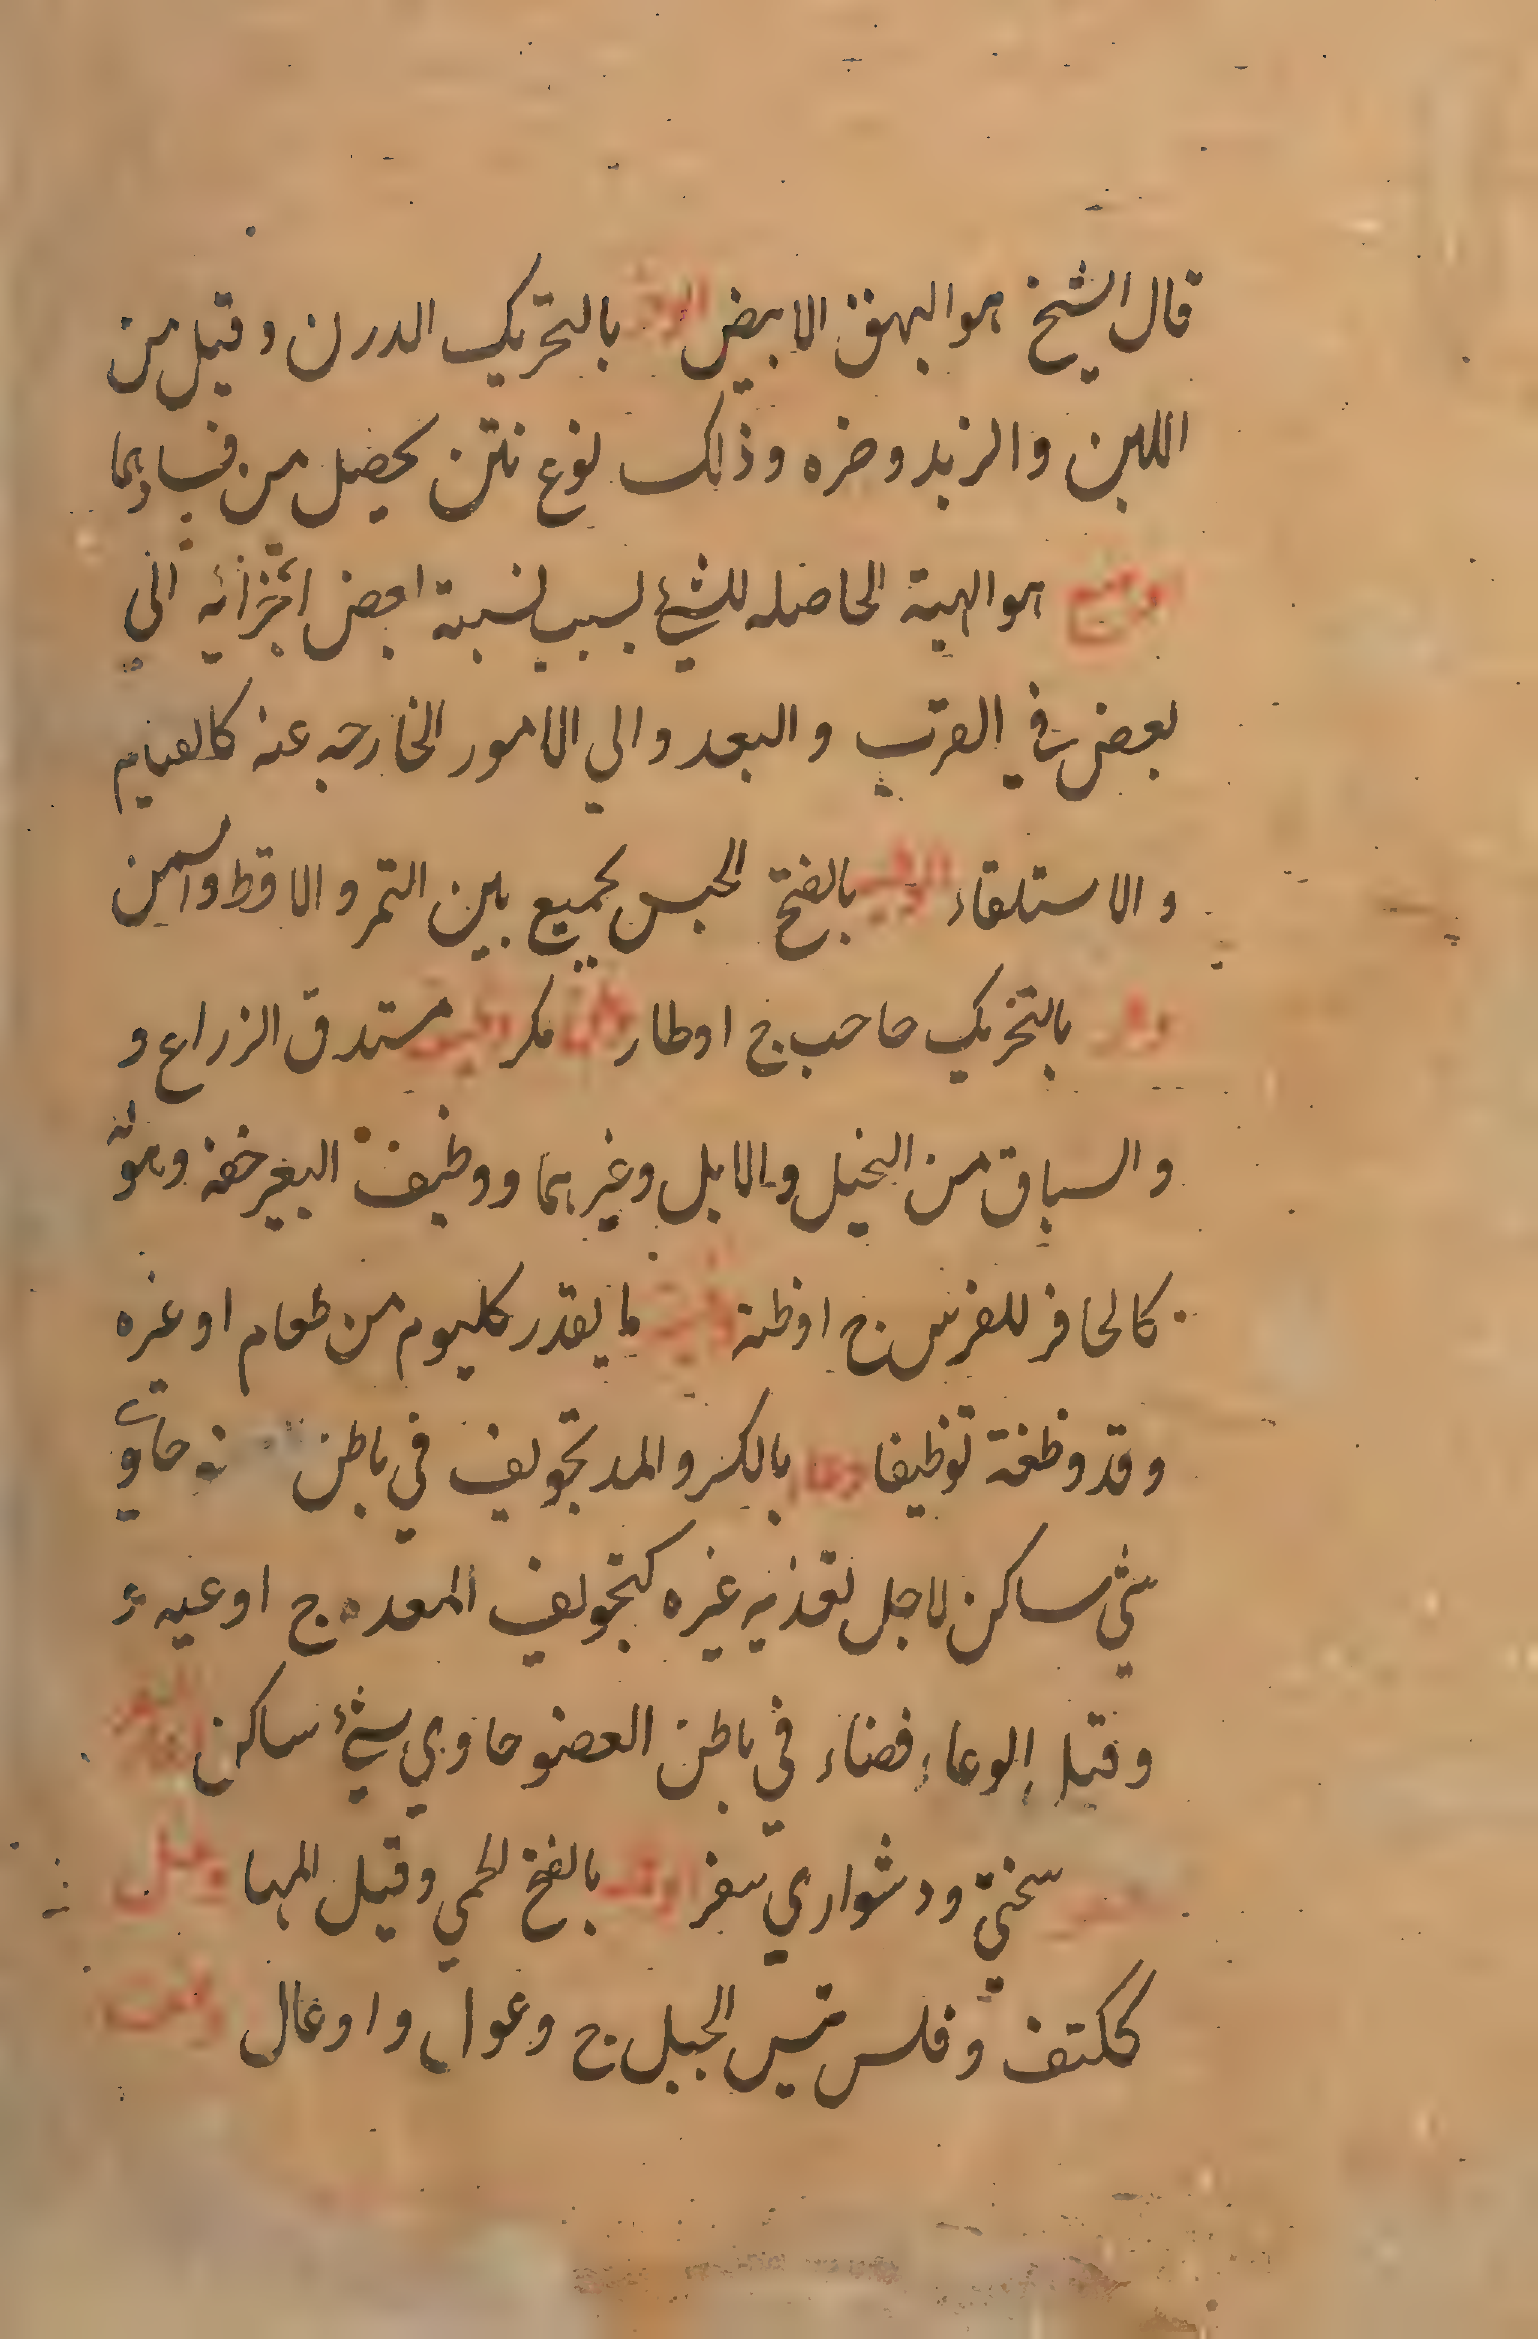 قال الشيخ هو البهق الابيض بالتحريك الدرن وقيل من
اللبن والزبد وضره وذلك نوع نتن يحصل من فسادهما
الوضع هو الهيئة الحاصله للشئ بسبب نسبة بعض اجزائه الى
بعض في القرب والبعد والي الامور الخارجه عنه كالقيام
والاستلقاء بالفتح الحيس يجمع بين التمر والاقط والسمن
وطر بالتحريك حاحب ج اوطار مكر مستدق الزراع و
والساق من الخيل والابل وغيرهما ووظيف البعير خفه وهو له
كالحافر للفرس ج اوظفة ما يقدر كليوم من طعام او غيره
وقد وظفة توظيفا وعا بالكسر والمد تجويف في باطن حاوي
شي ساكن لاجل تغذيه غيره كتجويف المعده ج اوعيه
وقيل الوعاء فضاء في باطن العضو حاوي شئ ساكن
سختي ودشواري سفر بالفتح الحمي وقيل المها وعل
ككتف وفلس تيس الجبل ج وعول واوعال